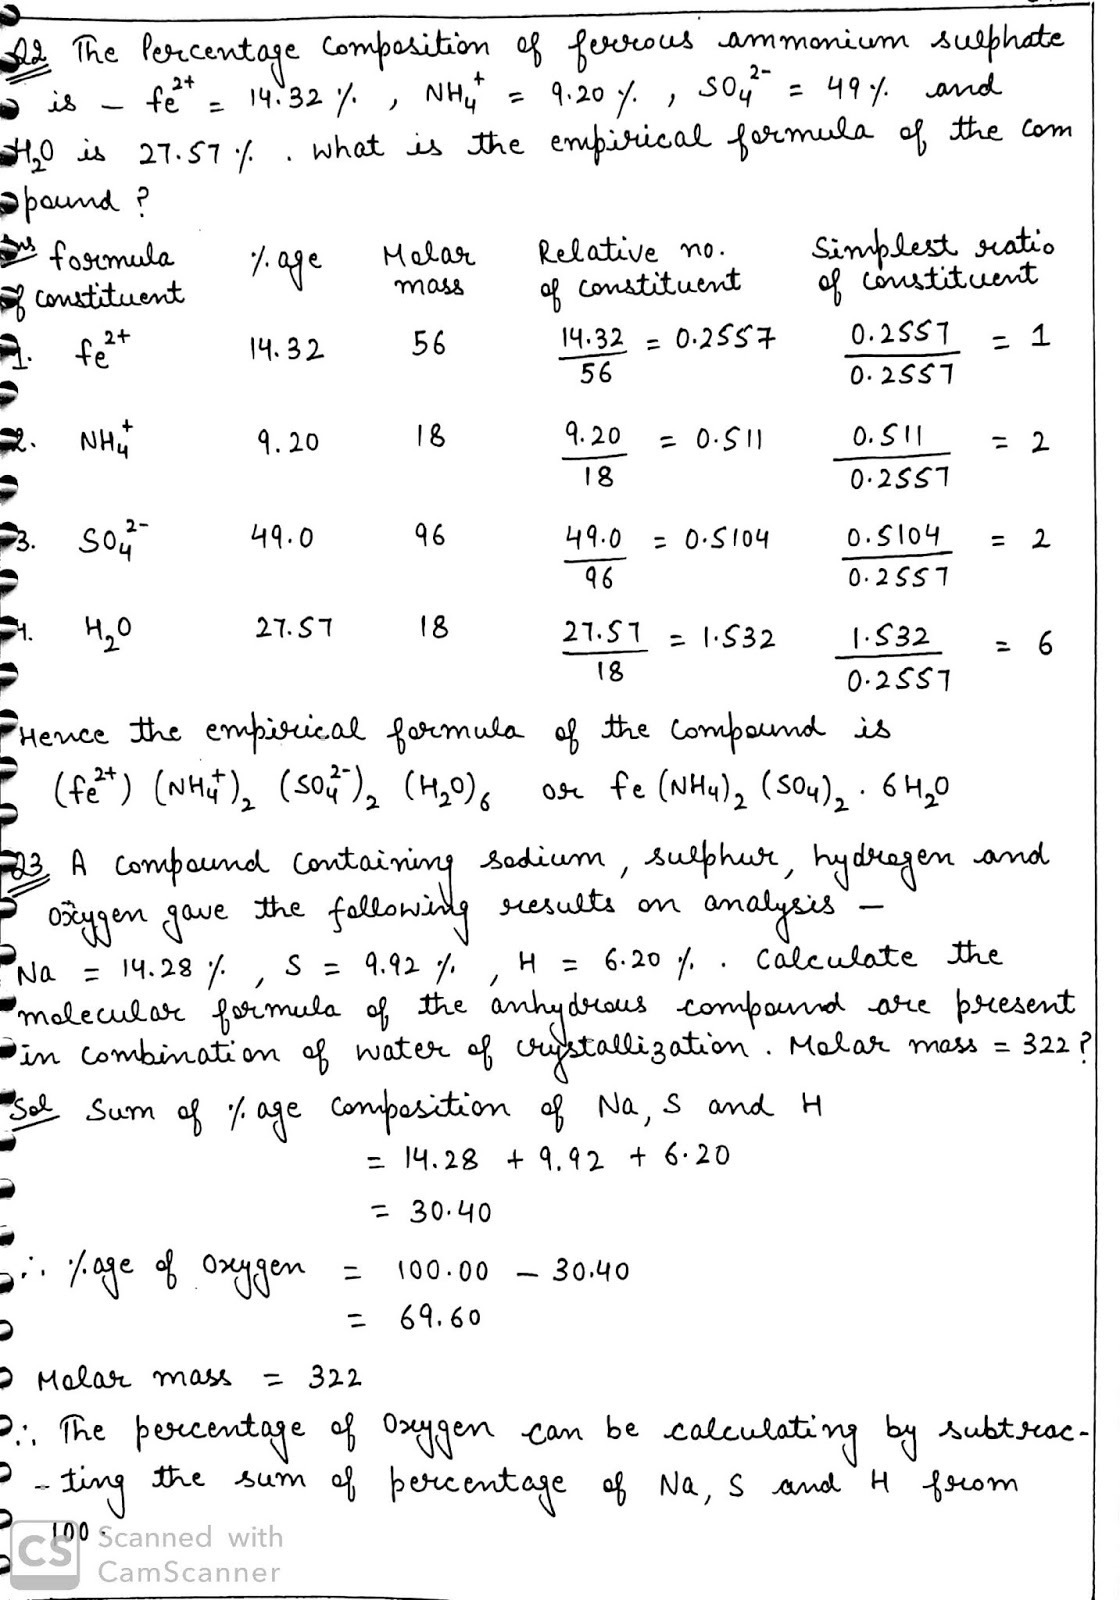 Q2 The Percentage composition of ferrous ammonium sulphate
is - fe²⁺ = 14.32 %. , NH₄⁺ = 9.20 %. , SO₄²⁻ = 49 %. and
H₂O is 27.57 %. . what is the empirical formula of the com
pound ?
Ans formula %.age Molar Relative no. Simplest ratio
of constituent mass of constituent of constituent
1. fe²⁺ 14.32 56 14.32/56 = 0.2557 0.2557/0.2557 = 1
2. NH₄⁺ 9.20 18 9.20/18 = 0.511 0.511/0.2557 = 2
3. SO₄²⁻ 49.0 96 49.0/96 = 0.5104 0.5104/0.2557 = 2
4. H₂O 27.57 18 27.57/18 = 1.532 1.532/0.2557 = 6
Hence the empirical formula of the compound is
(fe²⁺) (NH₄⁺)₂ (SO₄²⁻)₂ (H₂O)₆ or fe (NH₄)₂ (SO₄)₂ . 6H₂O
Q3 A compound containing sodium, sulphur, hydrogen and
oxygen gave the following results on analysis -
Na = 14.28 %. , S = 9.92 %. , H = 6.20 %. . Calculate the
molecular formula of the anhydrous compound are present
in combination of water of crystallization. Molar mass = 322 ?
Sol Sum of %.age composition of Na, S and H
= 14.28 + 9.92 + 6.20
= 30.40
∴ %.age of Oxygen = 100.00 - 30.40
= 69.60
Molar mass = 322
∴ The percentage of Oxygen can be calculating by subtrac-
-ting the sum of percentage of Na, S and H from
100.
CS Scanned with
CamScanner